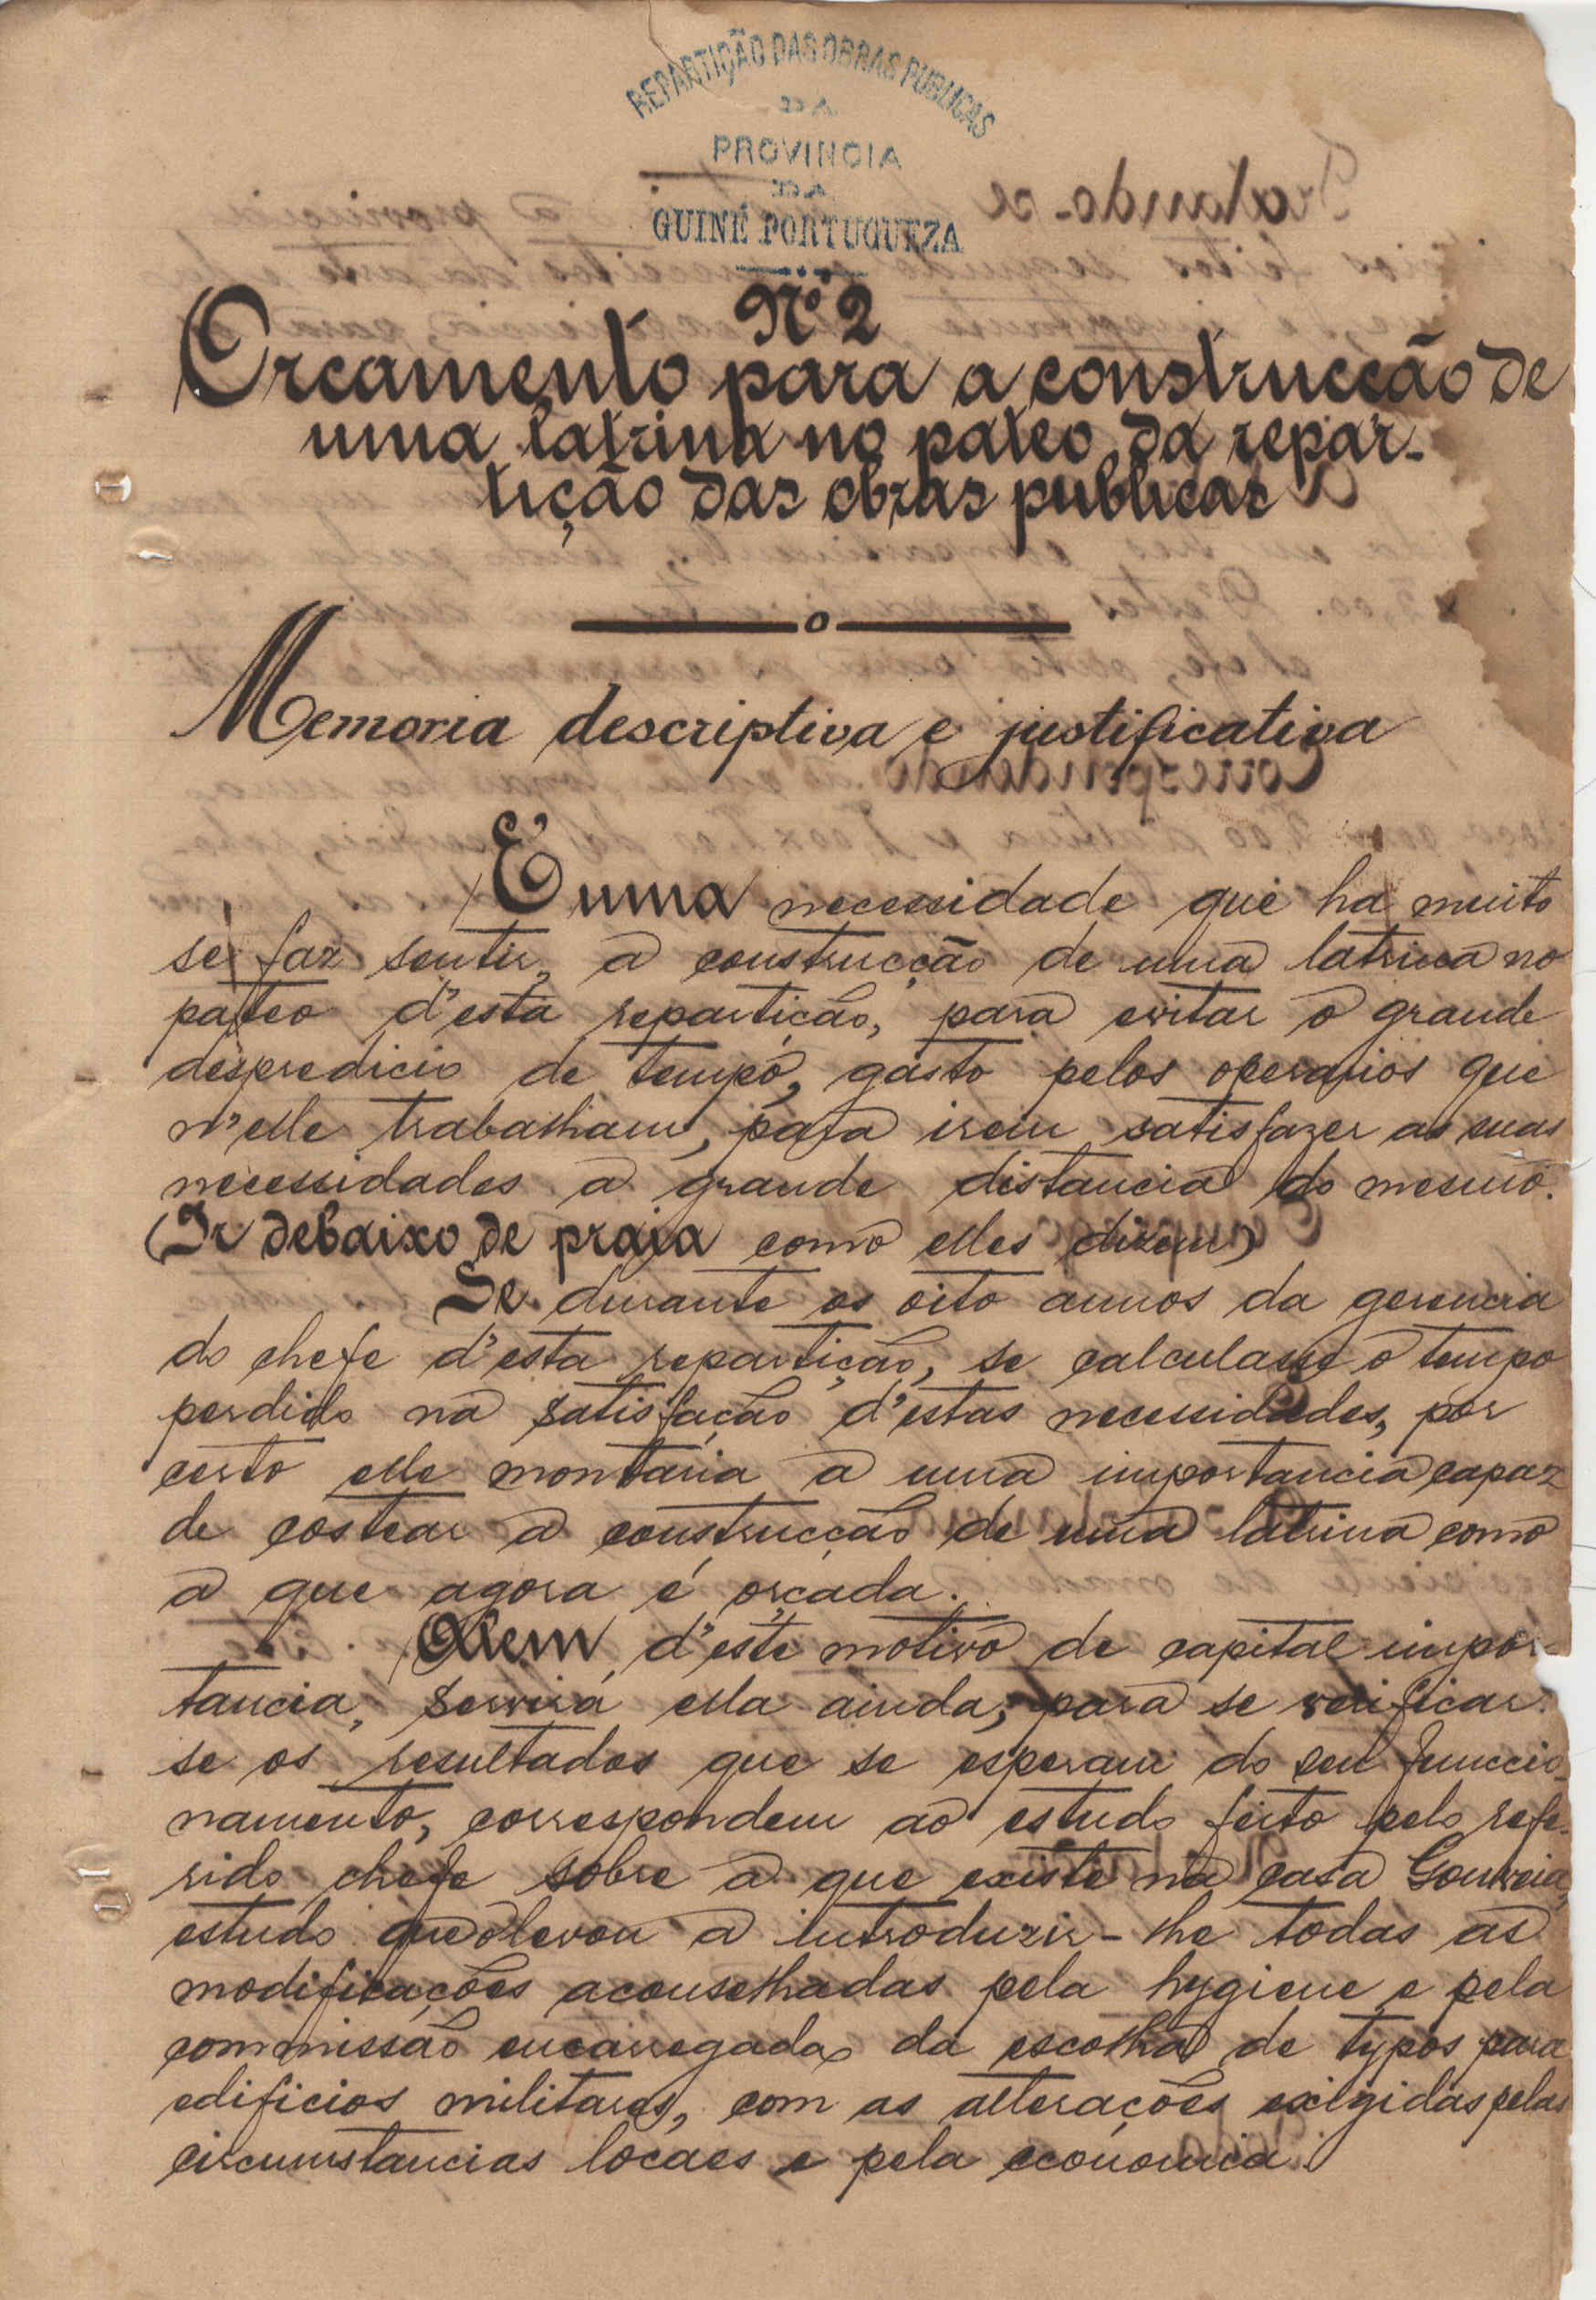 REPARTIÇÃO DAS OBRAS PUBLICAS
DA
PROVINCIA
DA
GUINÉ PORTUGUEZA
Nº 2
Orcamento para a construcção de
uma latrina no pateo da repar-
tição das obras publicas
Memoria descriptiva e justificativa
É uma necessidade que ha muito
se faz sentir, a construcção de uma latrina no
pateo d'esta repartição, para evitar o grande
despredicio de tempo, gasto pelos operarios que
n'elle trabalham, para irem satisfazer as suas
necessidades a grande distancia do mesmo.
(Ir debaixo de praia como elles dizem)
Se durante os oito annos da gerencia
do chefe d'esta repartição, se calculasse o tempo
perdido na satisfação d'estas necessidades, por
certo elle montaria a uma importancia capaz
de costear a construcção de uma latrina como
a que agora é orçada.
Alem d'este motivo de capital impor-
tancia, servirá ella ainda, para se verificar
se os resultados que se esperam do seu funccio-
namento, correspondem ao estudo feito pelo refe-
rido chefe sobre a que existe na casa Gouveia,
estudo que o levou a introduzir-lhe todas as
modificações aconselhadas pela hygiene e pela
commissão encarregada da escolha de typos para
edificios militares, com as alterações exigidas pelas
circumstancias locaes e pela economia.
Tratando-se
Correspondendo